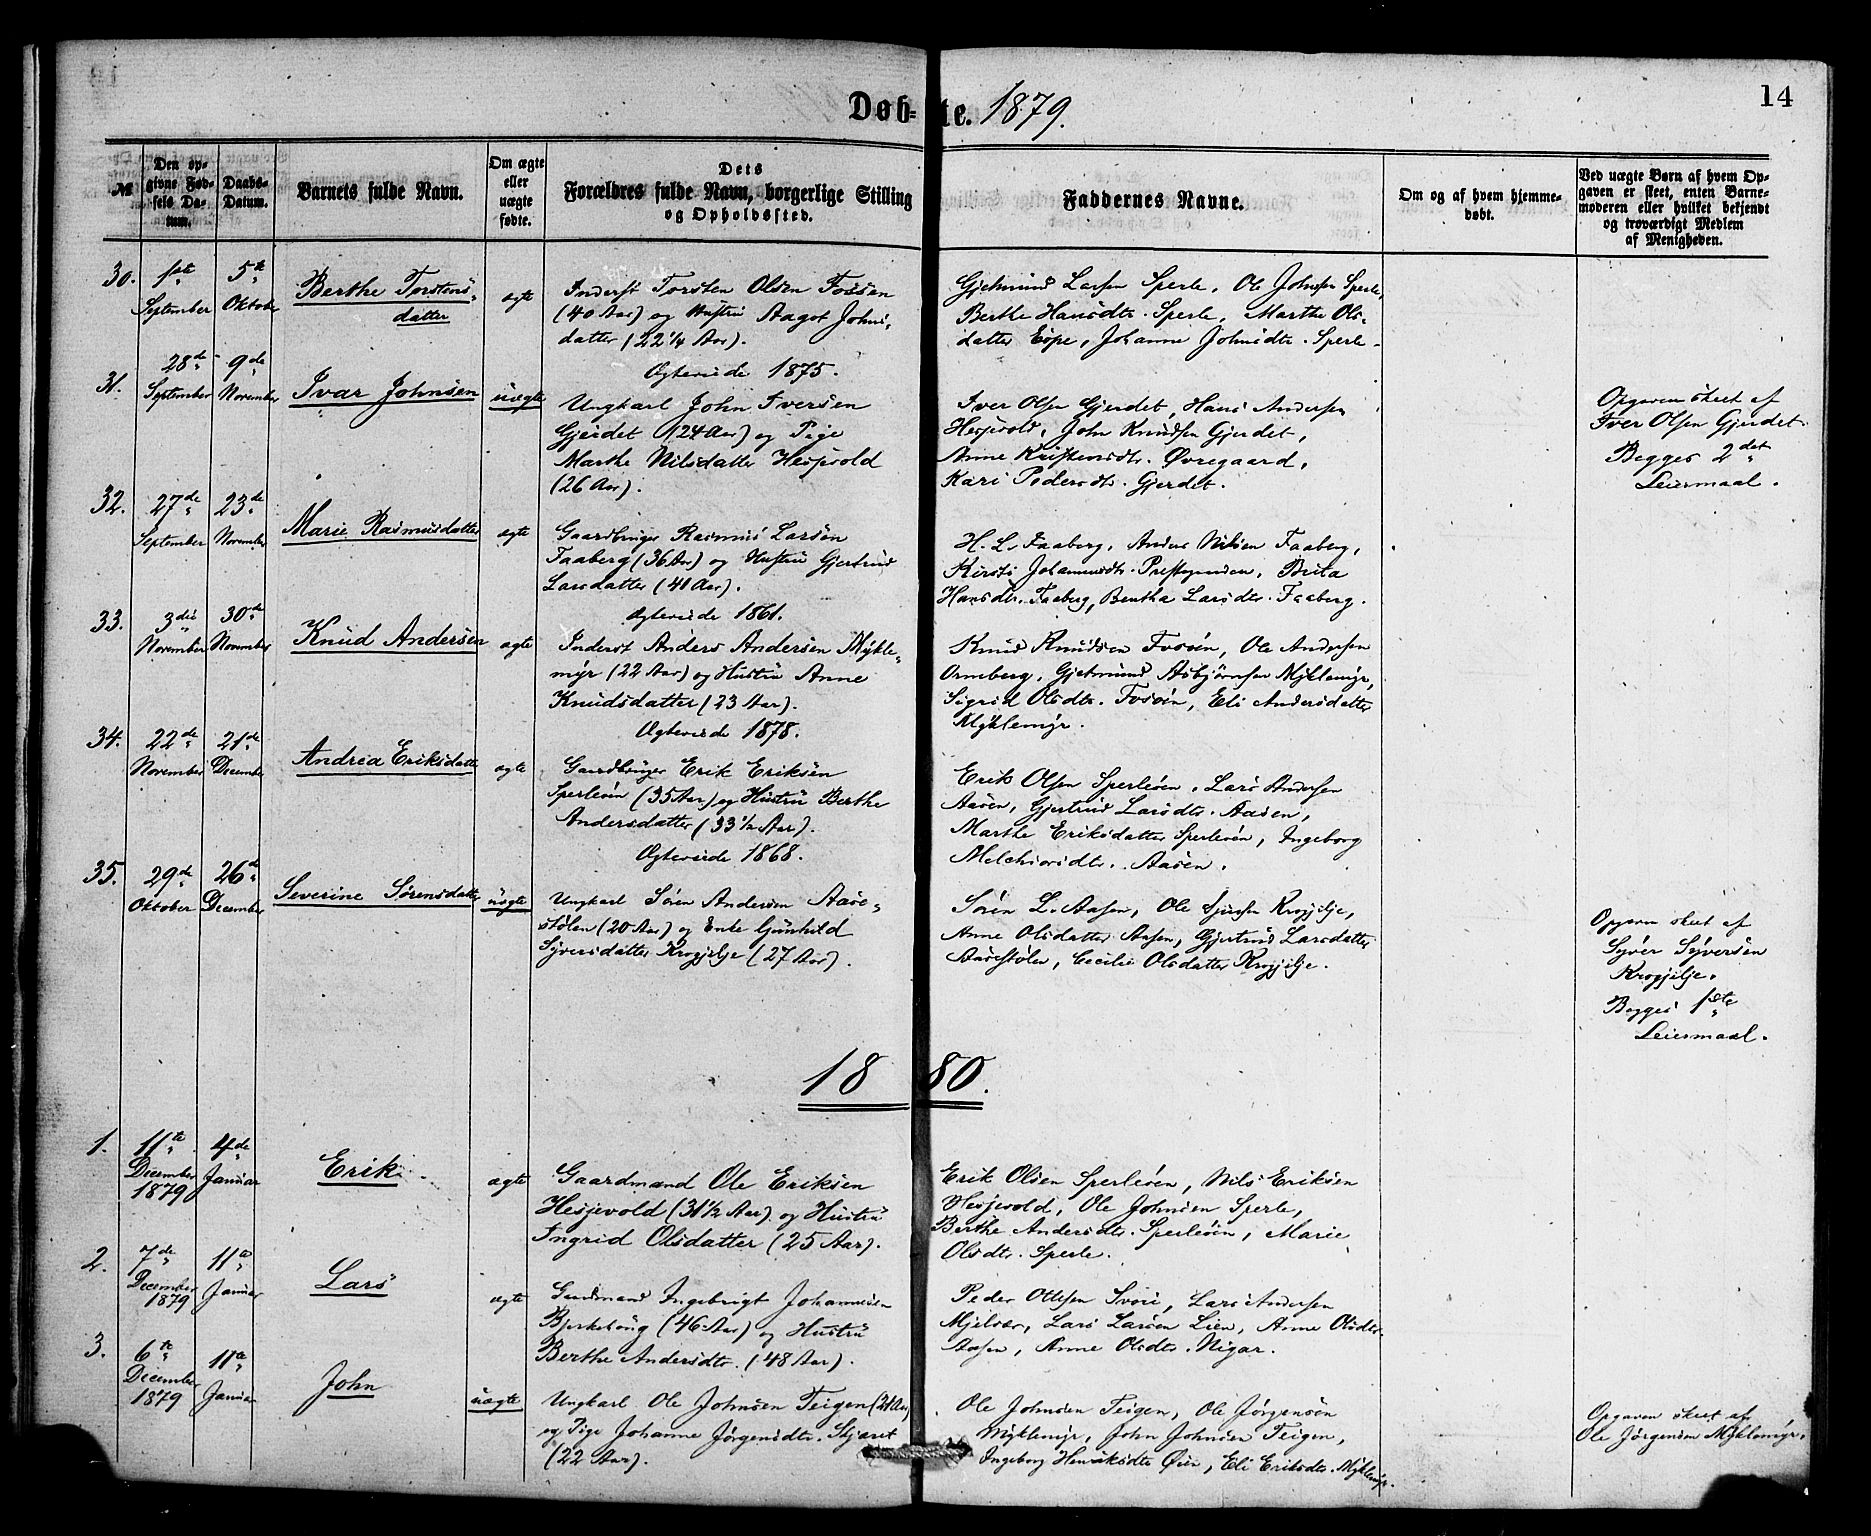 14
Døbte. 1879.
№
Den opgivne Fødsels Datum.
Daabs-Datum.
Barnets fulde Navn.
Om ægte eller uægte fødte.
Dets Forældres fulde Navn, borgerlige Stilling og Opholdssted.
Faddernes Navne.
Om og af hvem hjemmedøbt.
Ved uægte Børn af hvem Opgaven er skeet, enten Barnemoderen eller hvilket bekjendt og troværdigt Medlem af Menigheden.
30.
1ste September
5te Oktober
Berthe Torstens-
datter
ægte
Inderst Torsten Olsen Fossen
(40 Aar) og Hustru Aagot Johns-
datter (22 1/4 Aar).
Ægteviede 1875.
Gjetmund Larsen Sperle, Ole Johnsen Sperle,
Berthe Hansdtr. Sperle, Marthe Ols-
datter Espe, Johanne Johnsdtr. Sperle.
31.
28de September
9de November
Ivar Johnsen
uægte
Ungkarl John Iversen
Gjerdet (24 Aar) og Pige
Marthe Nilsdatter Hesjevold
(26 Aar).
Iver Olsen Gjerdet, Hans Andersen
Hesjevold, John Knudsen Gjerdet,
Anne Kristensdtr. Øvregaard,
Kari Pedersdtr. Gjerdet.
Opgaven skeet af
Iver Olsen Gjerdet.
Begges 2det
Leiermaal.
32.
27de September
23de November
Marie Rasmusdatter
ægte
Gaardbruger Rasmus Larsen
Faaberg (36 Aar) og Hustru Gjertrud
Larsdatter (41 Aar).
Ægteviede 1861.
H. L. Faaberg, Anders Nilsen Faaberg,
Kirsti Johannesdtr. Prestegarden, Brita
Hansdtr. Faaberg, Bertha Larsdtr. Faaberg.
33.
3die November
30de November
Knud Andersen
ægte
Inderst Anders Andersen Mykle-
myr (22 Aar) og Hustru Anne
Knudsdatter (23 Aar).
Ægteviede 1878.
Knud Knudsen Fosøen, Ole Andersen
Ormberg, Gjetmund Asbjørnsen Myklemyr,
Sigrid Olsdtr. Fosøen, Eli Andersdatter
Myklemyr.
34.
22de November
21de December
Andrea Eriksdatter
ægte
Gaardbruger Erik Eriksen
Sperleøen (35 Aar) og Hustru Berthe
Andersdatter (33 1/2 Aar).
Ægteviede 1868.
Erik Olsen Sperleøen, Lars Andersen
Aasen, Gjertrud Larsdtr. Aasen,
Marthe Eriksdatter Sperleøen, Ingeborg
Melchiorsdtr. Aasen.
35.
29de Oktober
26de December
Severine Sørensdatter
uægte
Ungkarl Søren Andersen Aase-
stølen (20 Aar) og Enke Gunhild
Syversdatter Krogjelje (27 Aar).
Søren L. Aasen, Ole Sjursen Krogjelje,
Anne Olsdatter Aasen, Gjertrud Larsdatter
Aasestølen, Cecilie Olsdatter Krogjelje.
Opgaven skeet af
Syver Syversen
Krogjelje.
Begges 1ste
Leiermaal.
1880.
1.
11te December 1879
4de Januar
Erik
ægte
Gaardmand Ole Eriksen
Hesjevold (31 1/2 Aar) og Hustru
Ingrid Olsdatter (25 Aar).
Erik Olsen Sperleøen, Nils Eriksen
Hesjevold, Ole Johnsen Sperle,
Berthe Andersdtr. Sperleøen, Marie
Olsdtr. Sperle.
2.
7de December 1879
11te Januar
Lars
ægte
Gaardmand Ingebrigt Johannesen
Bjerkehaug (46 Aar) og Hustru
Berthe Andersdtr. (48 Aar).
Peder Ottesen Svori, Lars Andersen
Mjelvær, Lars Larsen Lien, Anne Olsdtr.
Aasen, Anne Olsdtr. Nigar.
3.
6te December 1879
11te Januar
John
uægte
Ungkarl Ole Johnsen Teigen (21 Aar)
og Pige Johanne Jørgensdtr. Skjæret
(22 Aar).
Ole Johnsen Teigen, Ole Jørgensen
Myklemyr, John Johnsen Teigen,
Ingeborg Henriksdtr Øien, Eli Eriksdtr. Myklemyr.
Opgaven skeet af
Ole Jørgensen Myklemyr.